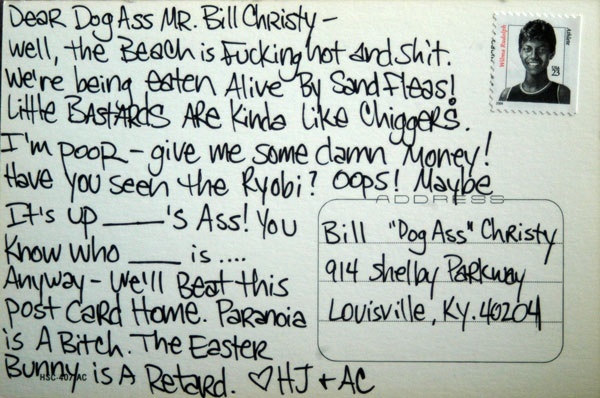 Dear Dog Ass Mr. Bill Christy –
Well, the Beach is Fucking hot and shit.
We're being eaten Alive By Sand Fleas!
Little BASTARDS ARE Kinda Like Chiggers.
I'm poor – give me some damn Money!
Have you seen the Ryobi? Oops! Maybe
It's up ____'s Ass! You
Know who ____ is ....
Anyway – We'll Beat this
post Card Home. Paranoia
is A Bitch. The Easter
Bunny is A Retard. ♡ HJ + AC
HSC-407 AC
Wilma Rudolph
Athlete
USA
23
ADDRESS
Bill "Dog Ass" Christy
914 Shelby Parkway
Louisville, KY. 40204